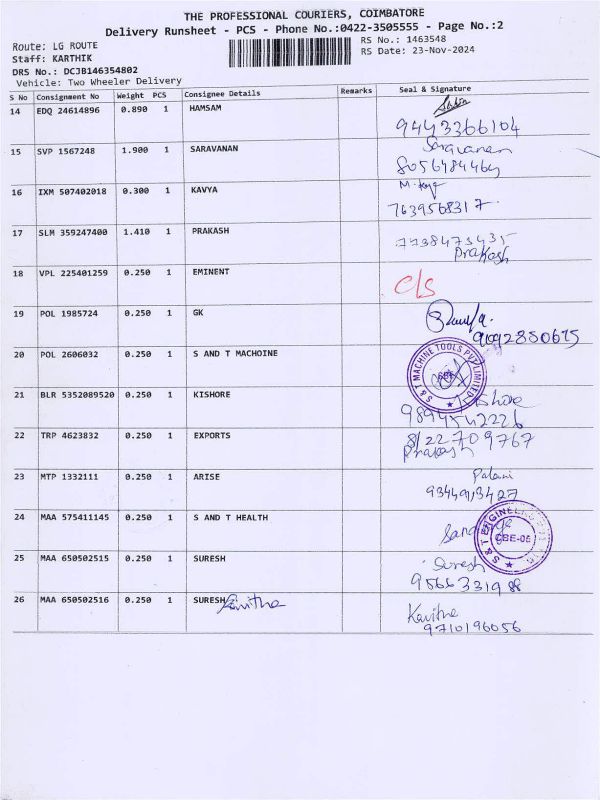 THE PROFESSIONAL COURIERS, COIMBATORE
Delivery Runsheet - PCS - Phone No.:0422-3505555 - Page No.:2
Route: LG ROUTE
RS No.: 1463548
Staff: KARTHIK
RS Date: 23-Nov-2024
DRS No.: DCJB146354802
Vehicle: Two Wheeler Delivery
S No Consignment No Weight PCS Consignee Details Remarks Seal & Signature
14 EDQ 24614896 0.890 1 HAMSAM
9443366104
15 SVP 1567248 1.900 1 SARAVANAN Saravanan
8056484464
16 IXM 507402018 0.300 1 KAVYA
7639568317
17 SLM 359247400 1.410 1 PRAKASH 7738473435
Prakash
18 VPL 225401259 0.250 1 EMINENT c/s
19 POL 1985724 0.250 1 GK
9092850675
20 POL 2606032 0.250 1 S AND T MACHOINE S & T MACHINE TOOLS PVT LIMITED
21 BLR 5352089520 0.250 1 KISHORE Kishore
9894542226
22 TRP 4623832 0.250 1 EXPORTS 8122709767
Prakash
23 MTP 1332111 0.250 1 ARISE Palani
9344913427
24 MAA 575411145 0.250 1 S AND T HEALTH S & T ENGINEER CBE-06
25 MAA 650502515 0.250 1 SURESH Suresh
9566331988
26 MAA 650502516 0.250 1 SURESH Kavitha Kavitha
9710196056